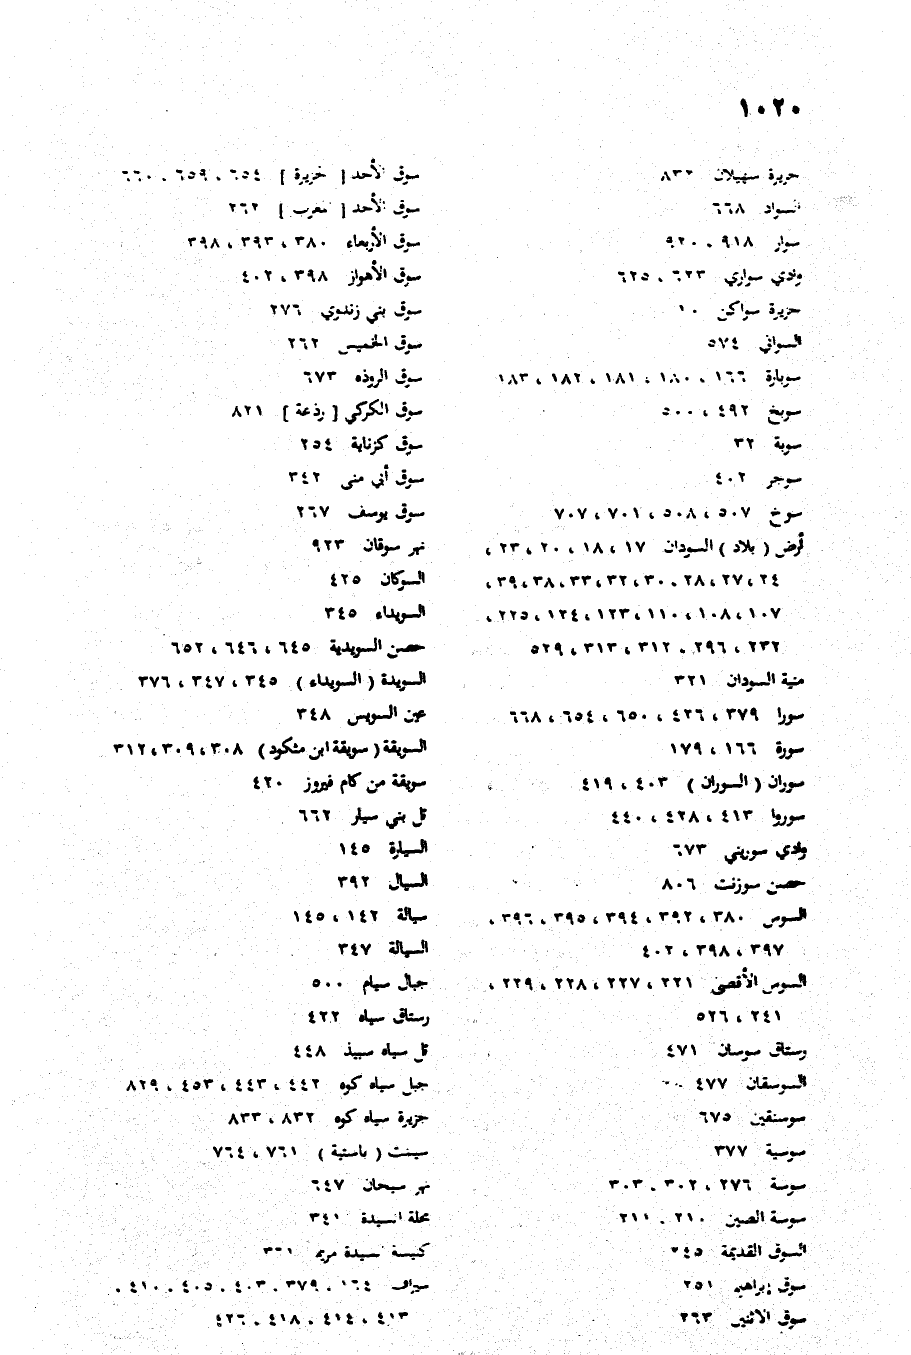 ١٠٢٠
جزيرة سهيلان ٨٣٢
السواد ٦٦٨
سوار ٩١٨ ، ٩٢٠
وادي سواري ٦٢٣ ، ٦٢٥
جزيرة سواكن ١٠
السواني ٥٧٤
سوبارة ١٦٦ ، ١٨٠ ، ١٨١ ، ١٨٢ ، ١٨٣
سوبخ ٤٩٢ ، ٥٠٠
سوبة ٣٢
سوجر ٤٠٢
سوخ ٥٠٧ ، ٥٠٨ ، ٧٠١ ، ٧٠٧
أرض ( بلاد ) السودان ١٧ ، ١٨ ، ٢٠ ، ٢٣ ،
٢٤ ، ٢٧ ، ٢٨ ، ٣٠ ، ٣٢ ، ٣٣ ، ٣٨ ، ٣٩ ،
١٠٧ ، ١٠٨ ، ١١٠ ، ١٢٣ ، ١٢٤ ، ٢٢٥ ،
٢٣٢ ، ٢٩٦ ، ٣١٢ ، ٣١٣ ، ٥٢٩
منية السودان ٣٢١
سورا ٣٧٩ ، ٤٢٦ ، ٦٥٠ ، ٦٥٤ ، ٦٦٨
سورة ١٦٦ ، ١٧٩
سوران ( السوران ) ٤٠٣ ، ٤١٩
سوروا ٤١٣ ، ٤٢٨ ، ٤٤٠
وادي سوريني ٦٧٣
حصن سوزنت ٨٠٦
السوس ٣٨٠ ، ٣٩٢ ، ٣٩٤ ، ٣٩٥ ، ٣٩٦ ،
٣٩٧ ، ٣٩٨ ، ٤٠٢
السوس الأقصى ٢٢١ ، ٢٢٧ ، ٢٢٨ ، ٢٢٩ ،
٢٤١ ، ٥٢٦
رستاق سوسان ٤٧١
السوسقان ٤٧٧
سوسنقين ٦٧٥
سوسية ٣٧٧
سوسة ٢٧٦ ، ٣٠٢ ، ٣٠٣
سوسة الصين ٢١٠ ، ٢١١
السوق القديمة ٢٤٥
سوق إبراهيم ٢٥١
سوق الاثنين ٢٦٣
سوق الأحد [ جزيرة ] ٦٥٤ ، ٦٥٩ ، ٦٦٠
سوق الأحد [ المغرب ] ٢٦٢
سوق الأربعاء ٣٨٠ ، ٣٩٣ ، ٣٩٨
سوق الأهواز ٣٩٨ ، ٤٠٢
سوق بني زندوي ٢٧٦
سوق الخميس ٢٦٢
سوق الروذه ٦٧٣
سوق الكركي [ رذعة ] ٨٢١
سوق كزناية ٢٥٤
سوق أبي منى ٣٤٢
سوق يوسف ٢٦٧
نهر سوقان ٩٢٣
السوكان ٤٢٥
السويداء ٣٤٥
حصن السويدية ٦٤٥ ، ٦٤٦ ، ٦٥٢
السويدة ( السويداء ) ٣٤٥ ، ٣٤٧ ، ٣٧٦
عين السويس ٣٤٨
السويقة ( سويقة ابن مثكود ) ٣٠٨ ، ٣٠٩ ، ٣١٢
سويقة من كام فيروز ٤٢٠
تل بني سيار ٦٦٢
السيارة ١٤٥
السيال ٣٩٢
سيالة ١٤٢ ، ١٤٥
السيالة ٣٤٧
جبال سيام ٥٠٠
رستاق سياه ٤٢٢
تل سياه سبيذ ٤٤٨
جبل سياه كوه ٤٤٢ ، ٤٤٣ ، ٤٥٣ ، ٨٢٩
جزيرة سياه كوه ٨٣٢ ، ٨٣٣
سيبنت ( باستية ) ٧٦١ ، ٧٦٤
نهر سيحان ٦٤٧
محلة السيدة ٣٤١
كنيسة السيدة مريم
سيراف ١٦٤ ، ٣٧٩ ، ٤٠٣ ، ٤٠٥ ، ٤١٠ ،
٤١٣ ، ٤١٤ ، ٤١٨ ، ٤٢٦